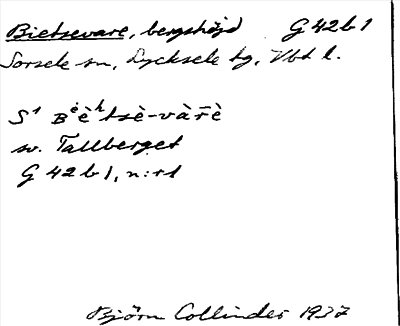 Bietsevare, bergshöjd G 42 b 1
Sorsele sn, Lycksele tg, Vbt l.
S¹ Bᵉèʰtsè-vàr̄è
sv. Tallberget
G 42 b 1, n:r 1
Björn Collinder 1937